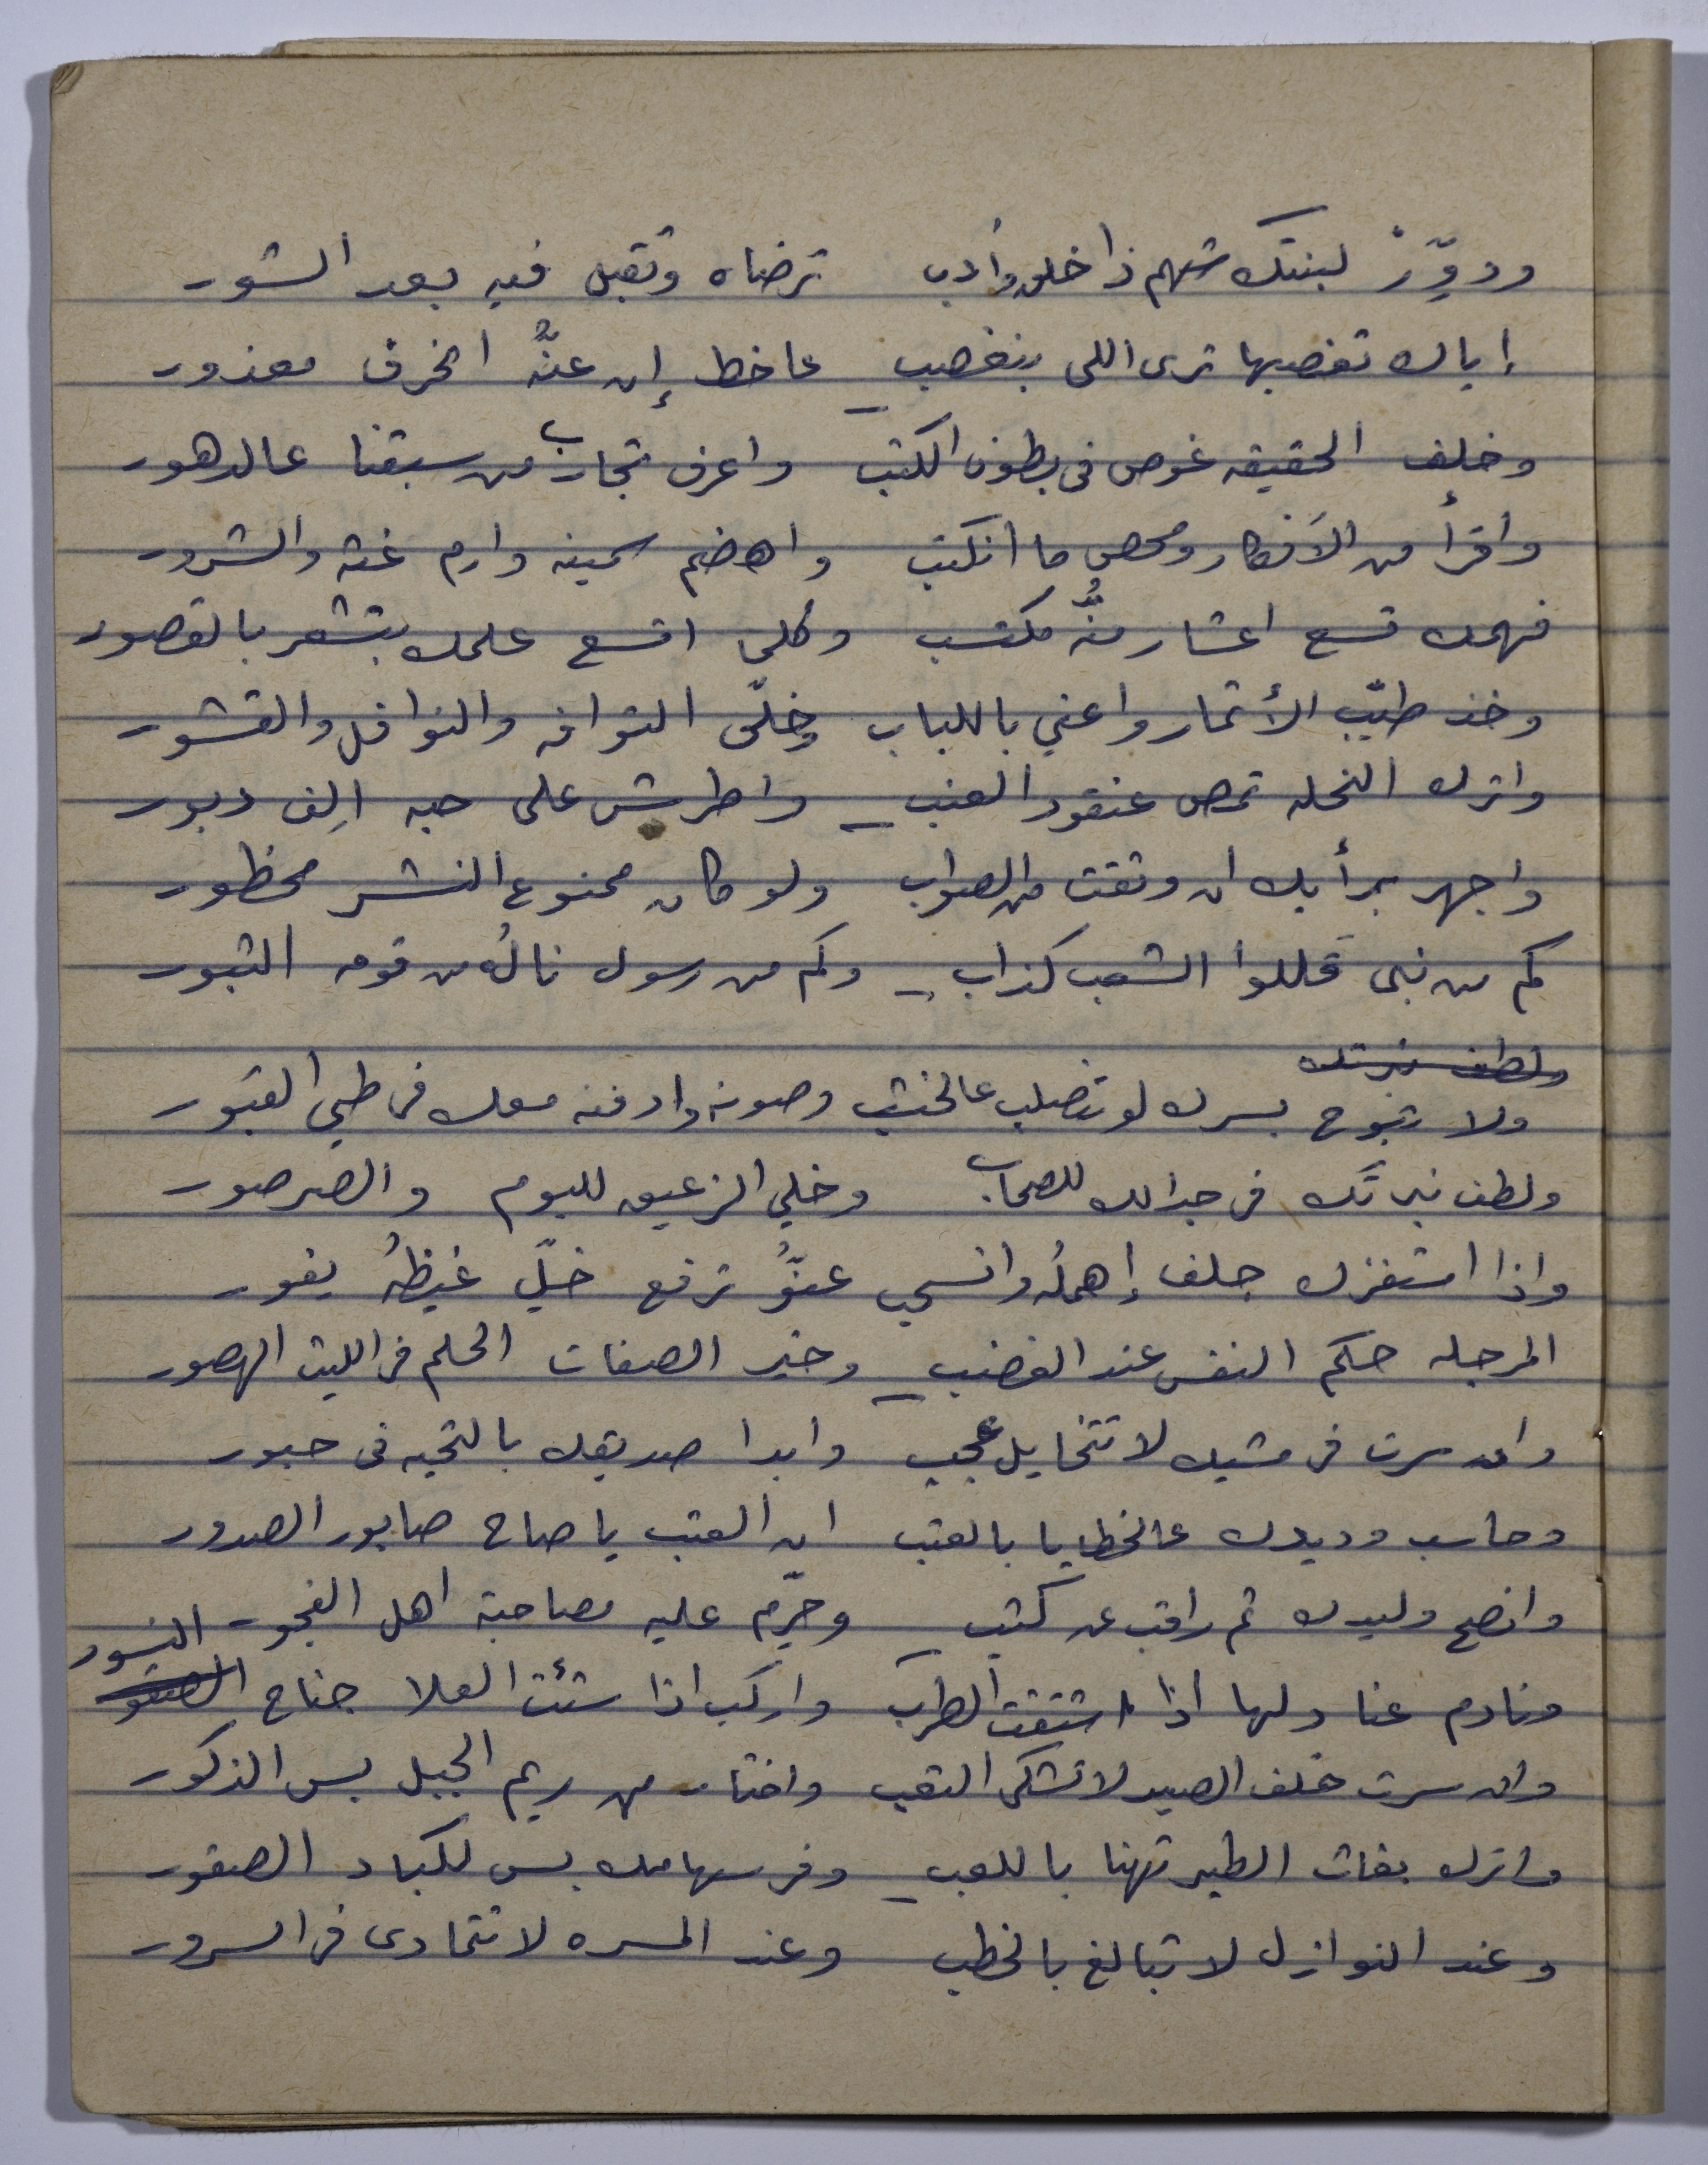 ودوِّرْ لبنتك شهم ذا خلق وأدب ترضاه وتقبل فيه بعد الشور
إياك تغصبها ترى اللي بنغصب عا خط إن عنّه انحرف معذور
وخلف الحقيقه غوص في بطون الكتب واعرف تجارب من سبقنا عالدهور
واقرأ من الأفكار ومحص ما انكتب واهضم سمينه وارم غثه والشرور
فهمك تسع اعشار منُّه مكتسب وكلما اتسع علمك بتشعر بالقصور
وخذ طيّب الأثمار واعني باللباب وخلّي التوافه والنوافل والقشور
واترك النحله تمص عنقود العنب واطرش على حبه الِف دبور
واجهر برأيك ان وثقت من الصواب ولو كان ممنوع النشر محظور
كم من نبي قللوا الشعب كذاب وكم من رسول نالُه من قومه الثبور
ولطف نبرتك
ولا تبوح بسرك لو تنصلب عالخشب وصونه وادفنه معك في طي القبور
ولطف نبرتك في جدالك للصحاب وخلي الزعيق للبوم والصرصور
واذا استفزك جلف إهملُه وانسحب عنُّو ترفع خلّي غيظهُ يفور
المرجله حكم النفس عند الغضب وخير الصفات الحلم في الليث الهصور
وان سرت في مشيك لا تتخايل عجب وابدا صديقك بالتحيه في حبور
وحاسب وديدك عالخطايا بالعتب ان العتب يا صاح صابور الصدور
وانصح وليدك ثم راقب عن كثب وحرّم عليه مصاحبة اهل الفجور
ونادم عنادلها اذا اشتقت الطرب واركب اذا شئت العلا جناح الصقور النسور
وان سرت خلف الصيد لا تشكي التعب واختار من ريم الجبل بس الذكور
واترك بغاث الطير تهنا باللعب وفر سهامك بس لكباد الصقور
وعند النوازل لا تبالغ بالخطب وعند المسره لا تتمادى في السرور